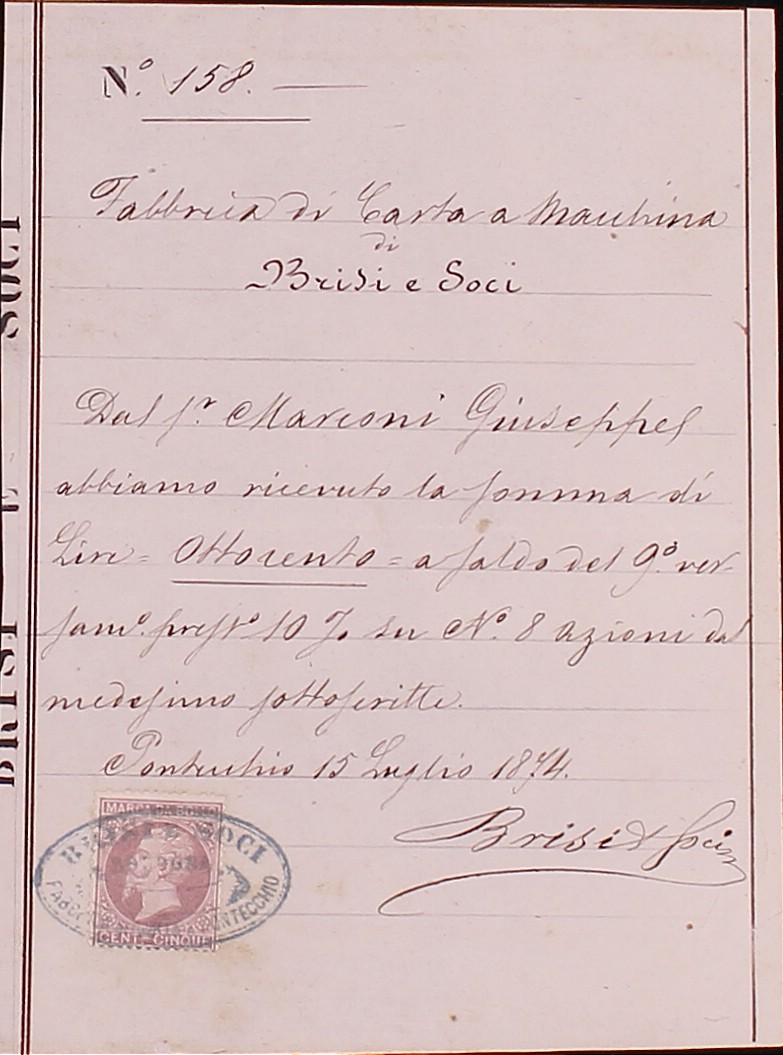 Nº. 158.
Fabbrica di Carta a Macchina
di
Brisi e Soci
Dal Sr. Marconi Giuseppe
abbiamo ricevuto la somma di
Lire = Ottocento = a saldo del 9º. ver-
samº. 10 % su Nº. 8 azioni dal
medesimo sottoscritte.
Pontecchio 15 Luglio 1874.
Brisi & Soci
MARCA DA BOLLO
BRISI E SOCI
BOLOGNA
PONTECCHIO
CENT. CINQUE
BRISI E SOCI